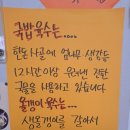 국밥육수는....
한돈 사골에 엄나무 생강등
12시간 이상 우려낸 진한
국물을 사용하고 있습니다.
올갱이 육수는...
생올갱이를 갈아서